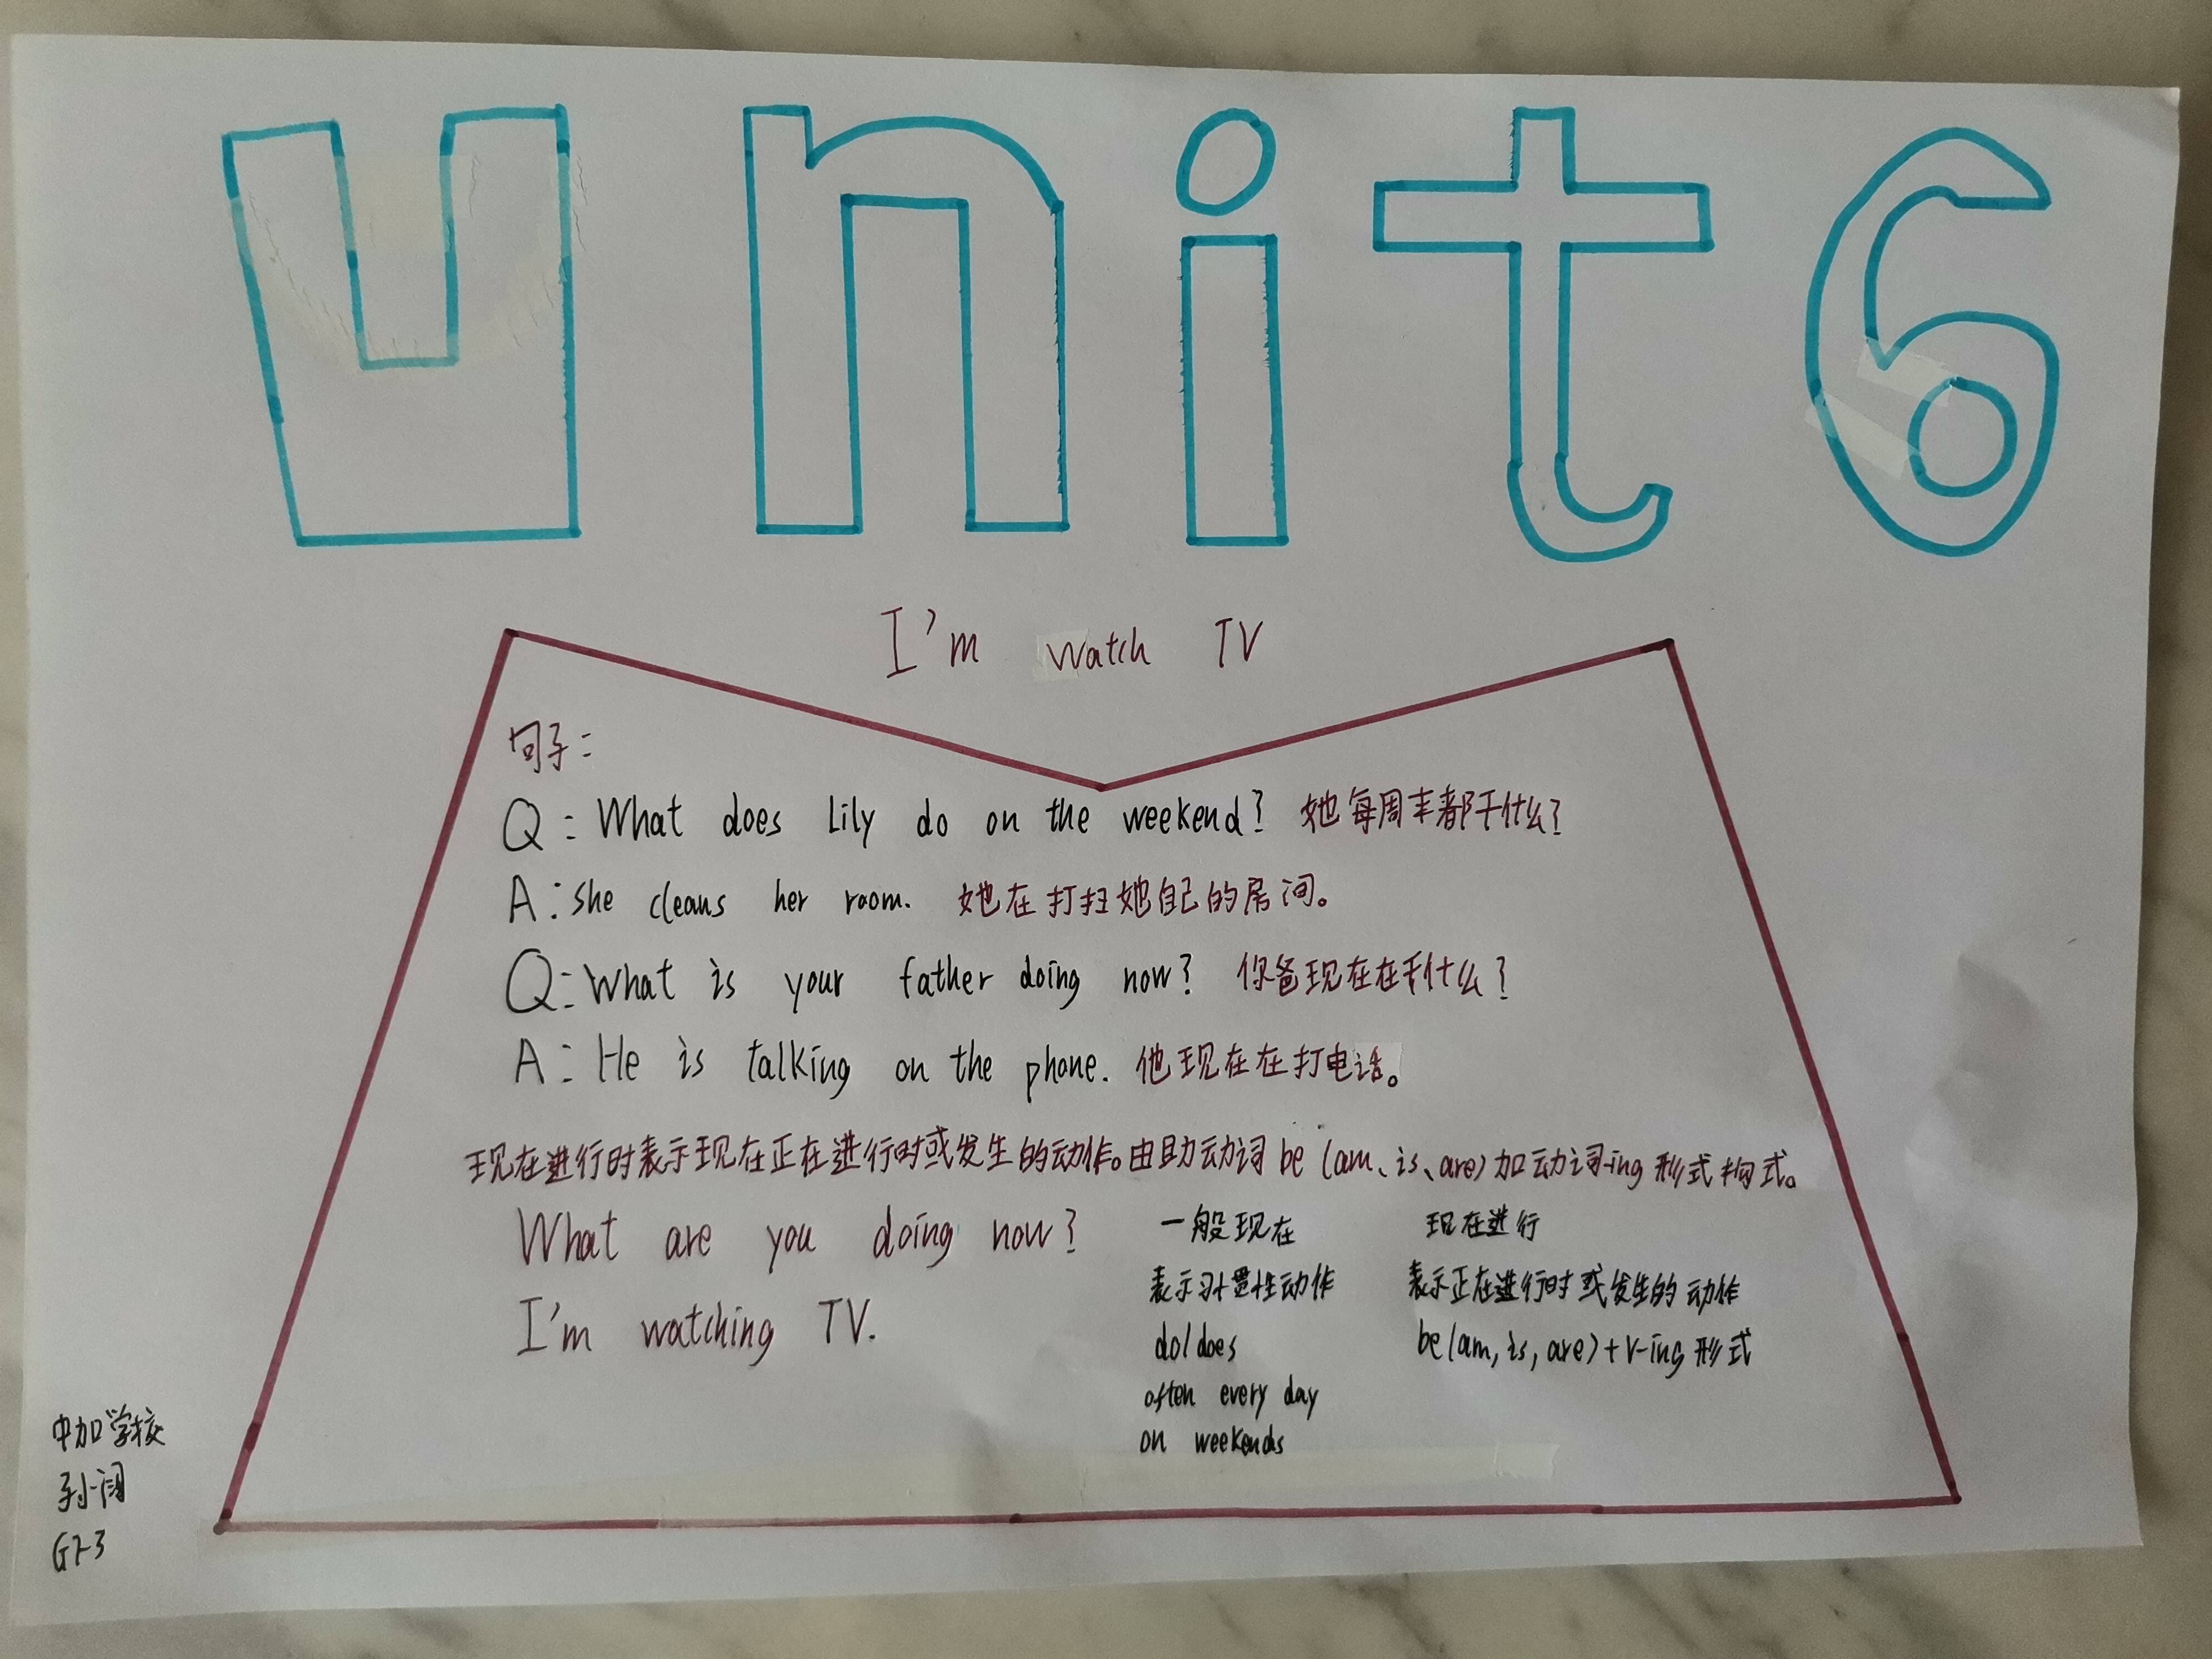 unit 6
I'm watch TV
句子:
Q: What does Lily do on the weekend? 她每周末都干什么?
A: She cleans her room. 她在打扫她自己的房间。
Q: What is your father doing now? 你爸现在在干什么?
A: He is talking on the phone. 他现在在打电话。
现在进行时表示现在正在进行时或发生的动作。由助动词 be (am、is、are) 加动词-ing 形式构式。
What are you doing now?
I'm watching TV.
一般现在
表示习惯性动作
do/does
often every day
on weekends
现在进行
表示正在进行时或发生的动作
be(am, is, are)+V-ing 形式
中加学校
孙
G7-3